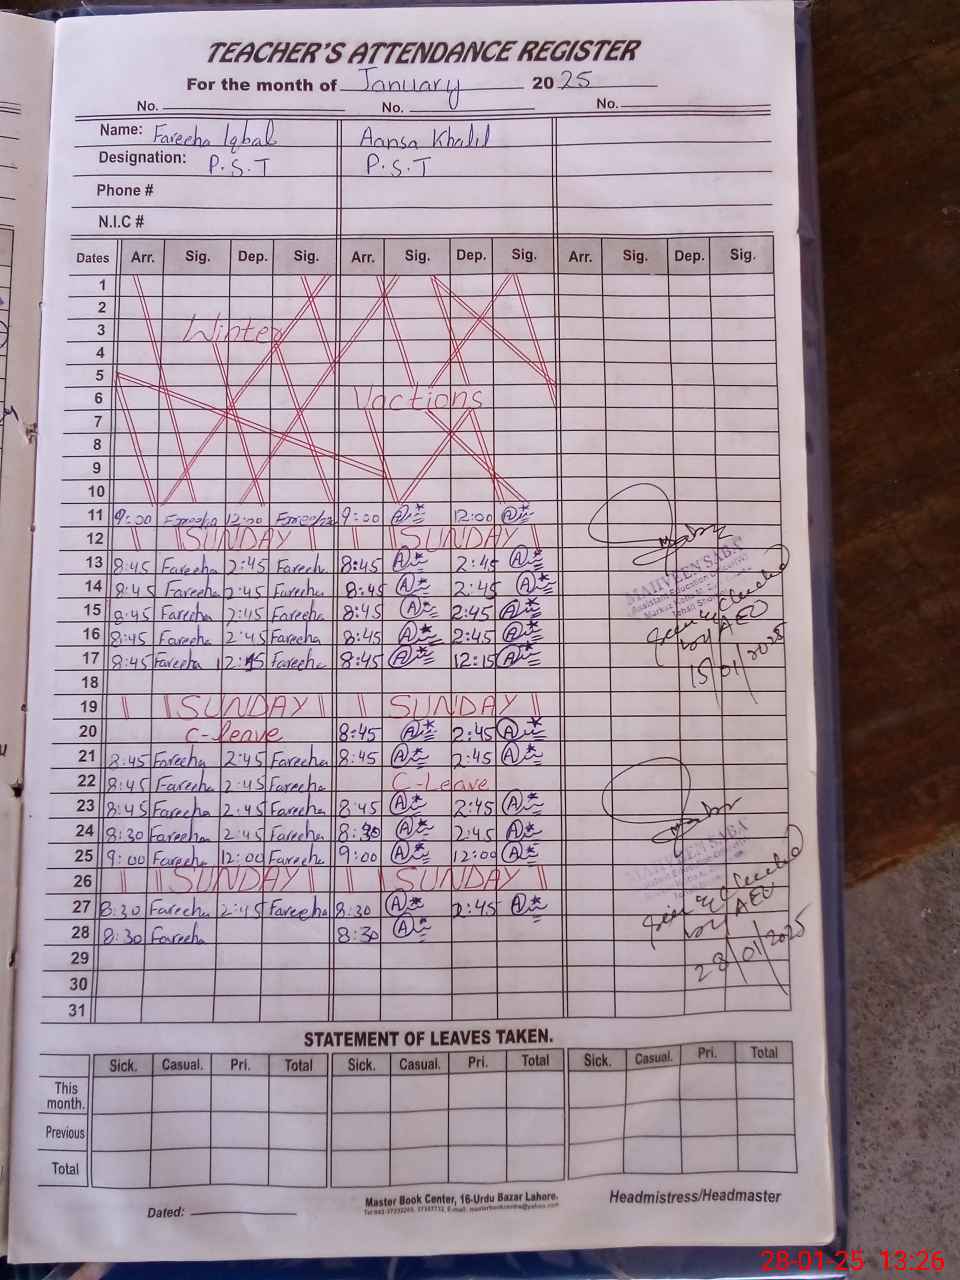 TEACHER'S ATTENDANCE REGISTER
For the month of January 2025
No. No. No.
Name: Fareeha Iqbal Aansa Khalil
Designation: P.S.T P.S.T
Phone #
N.I.C #
Dates Arr. Sig. Dep. Sig. Arr. Sig. Dep. Sig. Arr. Sig. Dep. Sig.
1
2
3 Winter
4
5
6 Vactions
7
8
9
10
11 9:00 Fareeha 12:00 Fareeha 9:00 12:00
12 SUNDAY SUNDAY
13 8:45 Fareeha 2:45 Fareeh 8:45 2:45
14 8:45 Fareeha 2:45 Fareeha 8:45 2:45
15 8:45 Fareeha 2:45 Fareeha 8:45 2:45
16 8:45 Fareeha 2:45 Fareeha 8:45 2:45
17 8:45 Fareeha 12:15 Fareeha 8:45 12:15
MAHVEEN SABA
Assistant Education
by AEO
15/01/2025
18
19 SUNDAY SUNDAY
20 C-leave 8:45 2:45
21 8:45 Fareeha 2:45 Fareeha 8:45 2:45
22 8:45 Fareeha 2:45 Fareeha C-Leave
23 8:45 Fareeha 2:45 Fareeha 8:45 2:45
24 8:30 Fareeha 2:45 Fareeha 8:30 2:45
25 9:00 Fareeha 12:00 Fareeha 9:00 12:00
26 SUNDAY SUNDAY
27 8:30 Fareeha 2:45 Fareeha 8:30 2:45
28 8:30 Fareeha 8:30
MAHVEEN SABA
by AEO
28/01/2025
29
30
31
STATEMENT OF LEAVES TAKEN.
Sick. Casual. Pri. Total Sick. Casual. Pri. Total Sick. Casual. Pri. Total
This month.
Previous
Total
Dated:
Master Book Center, 16-Urdu Bazar Lahore.
Headmistress/Headmaster
28-01-25 13:26